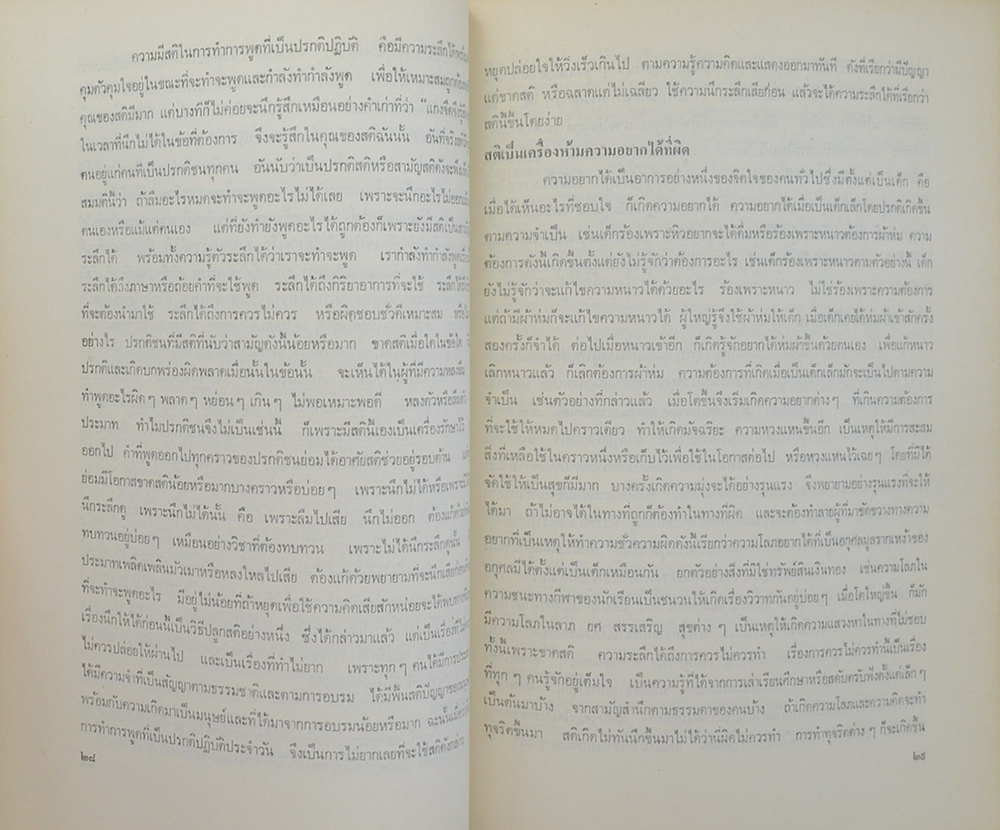 ความมีสติในการทำการพูดที่เป็นปรกติปฏิบัติ คือมีความระลึกได้พร้อม
คุมตัวคุมใจอยู่ในขณะที่จะทำจะพูดและกำลังทำกำลังพูด เพื่อให้เหมาะสมถูกต้อง
คุณของสติมีมาก แต่บางทีก็ไม่ค่อยจะนึกรู้สึกเหมือนอย่างคำเก่าที่ว่า
ในเวลาที่นึกไม่ได้ในข้อที่ต้องการ จึงจะรู้สึกในคุณของสติฉันนั้น อันที่จริง
ตนอยู่แก่คนที่เป็นปรกติชนทุกคน อันนับว่าเป็นปรกติสติหรือสามัญสติดังจะพึง
สมมตินี้ว่า ถ้าลืมอะไรหมดจะทำจะพูดอะไรไม่ได้เลย เพราะจะนึกอะไรไม่ออก
ตนเองหรือแม้แต่ตนเอง แต่ที่ยังทำยังพูดอะไรได้ถูกต้องก็เพราะยังมีสติเป็น
ระลึกได้ พร้อมทั้งความรู้ตัวระลึกได้ว่าเราจะทำจะพูด เรากำลังทำกำลังพูด
ระลึกได้ถึงภาษาหรือถ้อยคำที่จะใช้พูด ระลึกได้ถึงกิริยาอาการที่จะใช้ ระลึกได้
ที่จะต้องนำมาใช้ ระลึกได้ถึงการควรไม่ควร หรือผิดชอบชั่วดีเหมาะสม
อย่างไร ปรกติชนที่มีสติที่นับว่าสามัญดังนี้น้อยหรือมาก ขาดสติเมื่อใดในข้อใด
ปรกติและเกิดบกพร่องผิดพลาดเมื่อนั้นในข้อนั้น จะเห็นได้ในผู้ที่มีความหลงลืม
ทำพูดอะไรผิดๆ พลาดๆ หย่อนๆ เกินๆ ไม่พอเหมาะพอดี หลงตัวหรือลืมตัว
ประมาท ทำไมปรกติชนจึงไม่เป็นเช่นนี้ ก็เพราะมีสตินี้เองเป็นเครื่องรักษา
ออกไป คำที่พูดออกไปทุกคราวของปรกติชนย่อมได้อาศัยสติช่วยอยู่รอบด้าน
ย่อมมีโอกาสขาดสติน้อยหรือมากบางคราวหรือบ่อยๆ เพราะนึกไม่ได้หรือเพราะ
นึกระลึกดู เพราะนึกไม่ได้นั้น คือ เพราะลืมไปเสีย นึกไม่ออก ต้องแก้ด้วย
ทบทวนอยู่บ่อยๆ เหมือนอย่างวิชาที่ต้องทบทวน เพราะไม่ได้นึกระลึกดูนั้น
ประมาทเพลิดเพลินมัวเมาหรือหลงใหลไปเสีย ต้องแก้ด้วยพยายามที่จะนึกเสียก่อน
ที่จะทำจะพูดอะไร มีอยู่ไม่น้อยที่ถ้าหยุดเพื่อใช้ความคิดเสียสักหน่อยจะได้พบทาง
เรื่องนึกให้ได้ก่อนนี้เป็นวิธีปลูกสติอย่างหนึ่ง ซึ่งได้กล่าวมาแล้ว แต่เป็นเรื่องที่
ไม่ควรปล่อยให้ผ่านไป และเป็นเรื่องที่ทำไม่ยาก เพราะทุกๆ คนได้มีการ
ได้มีความจำที่เป็นสัญญาตามธรรมชาติและตามการอบรม ได้มีพื้นสติปัญญาของ
พร้อมกับความเกิดมาเป็นมนุษย์และที่ได้มาจากการอบรมน้อยหรือมาก ฉะนั้นเมื่อ
การทำการพูดที่เป็นปรกติปฏิบัติประจำวัน จึงเป็นการไม่ยากเลยที่จะใช้สติดังกล่าว
๒๘
หยุดปล่อยใจให้วิ่งเร็วเกินไป ตามความรู้ความคิดและแสดงออกมาทันที ดังที่เรียกว่ามีปัญญา
แต่ขาดสติ หรือฉลาดแต่ไม่เฉลียว ใช้ความนึกระลึกเสียก่อน แล้วจะได้ความระลึกได้ที่เรียกว่า
สตินี้ขึ้นโดยง่าย
สติเป็นเครื่องห้ามความอยากได้ที่ผิด
ความอยากได้เป็นอาการอย่างหนึ่งของจิตใจของคนทั่วไปซึ่งมีตั้งแต่เป็นเด็ก คือ
เมื่อได้เห็นอะไรที่ชอบใจ ก็เกิดความอยากได้ ความอยากได้เมื่อเป็นเด็กเล็กโดยปรกติเกิดขึ้น
ตามความจำเป็น เช่นเด็กร้องเพราะหิวอยากจะได้ดื่มหรือร้องเพราะหนาวต้องการผ้าห่ม ความ
ต้องการดังนี้เกิดขึ้นตั้งแต่ยังไม่รู้จักว่าต้องการอะไร เช่นเด็กร้องเพราะหนาวตามตัวอย่างนี้ เด็ก
ยังไม่รู้จักว่าจะแก้ไขความหนาวได้ด้วยอะไร ร้องเพราะหนาว ไม่ใช่ร้องเพราะความต้องการ
แต่ถ้ามีผ้าห่มก็จะแก้ไขความหนาวได้ ผู้ใหญ่รู้จึงใช้ผ้าห่มให้เด็ก เมื่อเด็กเคยได้ห่มผ้าเข้าสักครั้ง
สองครั้งก็จำได้ ต่อไปเมื่อหนาวเข้าอีก ก็เกิดรู้จักอยากได้ห่มผ้าขึ้นด้วยตนเอง เพื่อแก้หนาว
เลิกหนาวแล้ว ก็เลิกต้องการผ้าห่ม ความต้องการที่เกิดเมื่อเป็นเด็กเล็กมักจะเป็นไปตามความ
จำเป็น เช่นตัวอย่างที่กล่าวแล้ว เมื่อโตขึ้นจึงเริ่มเกิดความอยากต่างๆ ที่เกินความต้องการ
ที่จะใช้ให้หมดไปคราวเดียว ทำให้เกิดมัจฉริยะ ความหวงแหนขึ้นอีก เป็นเหตุให้มีการสะสม
สิ่งที่เหลือใช้ในคราวหนึ่งหรือเก็บไว้เพื่อใช้ในโอกาสต่อไป หรือหวงแหนไว้เฉยๆ โดยที่มิได้
จัดใช้ให้เป็นสุขก็มีมาก บางครั้งเกิดความมุ่งจะได้อย่างรุนแรง จึงพยายามอย่างรุนแรงที่จะให้
ได้มา ถ้าไม่อาจได้ในทางที่ถูกก็ต้องทำในทางที่ผิด และจะต้องทำลายผู้ที่มาขัดขวางทางความ
อยากที่เป็นเหตุให้ทำความชั่วความผิดดังนี้เรียกว่าความโลภอยากได้ที่เป็นอกุศลมูลรากเหง้าของ
อกุศลมีได้ตั้งแต่เป็นเด็กเหมือนกัน ยกตัวอย่างสิ่งที่มิใช่ทรัพย์สินเงินทอง เช่นความโลภใน
ความชนะทางกีฬาของนักเรียนเป็นชนวนให้เกิดเรื่องวิวาทกันอยู่บ่อยๆ เมื่อโตใหญ่ขึ้น ก็มัก
มีความโลภในลาภ ยศ สรรเสริญ สุขต่าง ๆ เป็นเหตุให้เกิดความแสวงหาในทางที่ไม่ชอบ
ทั้งนี้เพราะขาดสติ ความระลึกได้ถึงการควรไม่ควรทำ เรื่องการควรไม่ควรทำนี้เป็นเรื่อง
ที่ทุก ๆ คนรู้จักอยู่เต็มใจ เป็นความรู้ที่ได้จากการเล่าเรียนศึกษาหรือสดับตรับฟังตั้งแต่เล็กๆ
เป็นต้นมาบ้าง จากสามัญสำนึกตามธรรมดาของคนบ้าง ถ้าเกิดความโลภและความคิดจะทำ
ทุจริตขึ้นมา สติเกิดไม่ทันนึกขึ้นมาไม่ได้ว่านี่ผิดไม่ควรทำ การทำทุจริตต่าง ๆ ก็จะเกิดขึ้น
๒๙